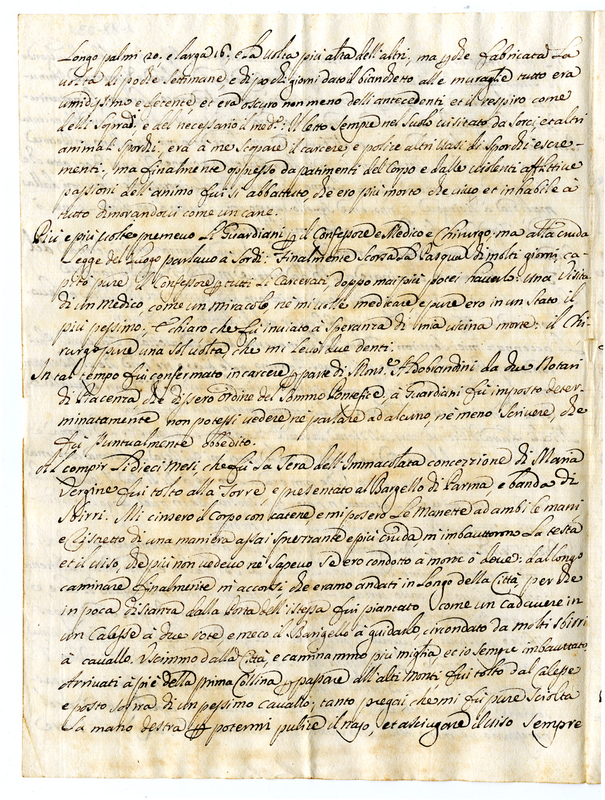 Longo palmi 20. e larga 16. e la volta più alta dell'altri, ma p che fabricata la
volta di poche settimane, e di pochi giorni dato il bianchetto alle muraglie tutto era
umidissimo e fetente, et era oscuro non meno dell'antecedenti et il respiro come
delli e del necessario il med.º: Il letto sempre nel suolo visitato da sorci et altri
animali sporchi, era à me scopare il carcere e polire altri vasi di sporchi escre-
menti. ma finalmente oppresso da patimenti del Corpo e dalle violenti afflittive
passioni dell'animo fui sì abbattuto, che ero più morto che vivo et inhabile à
tutto dimorandovi come un cane.
Più e più volte premevo li Guardiani p il Confessore e Medico e Chirurgo, ma alla cruda
legge del luogo parlavo a sordi: Finalmente scorsa la Pasqua di molti giorni ca-
pitò pure il Confessore p tutti li Carcerati, doppo mai più potei haverlo: Una visita
di un Medico come un miracolo nè mi volle medicare e pure ero in un stato il
più pessimo. È chiaro che fui inviato à speranza di mia vicina morte: il Chi-
rurgo pure una sol volta che mi levò due denti.
In tal tempo fui confermato in carcere p parte di Mons.r Aldobrandini da due Notari
di Piacenza, che dissero ordine del Sommo Pontefice, à Guardiani fù imposto deter-
minatamente non potessi vedere nè parlare ad alcuno, nè meno scrivere, che
fui puntualmente obbedito.
Al compir li dieci mesi, che fu la sera dell'Immacolata concezzione di Maria
Vergine fui tolto alla Torre e presentato al Bargello di Parma e banda di
sbirri. Mi cinsero il Corpo con catene e mi posero le Manette ad ambi le mani
e ristretto di una maniera assai e più cruda, mi imbauttorno la testa
et il viso, che più non vedevo nè sapevo se ero condoto a monte ò : dal longo
caminare finalmente m'accorsi che eramo andati in longo della Città, per che
in poca distanza dalla Porta dell'istessa fui piantato come un cadavere in
un Calesse à due rote e meco il Barigello à guidarlo, circondato da molti sbirri
à cavallo. Uscimmo dalla Città e caminammo più miglia et io sempre imbauttato,
Arrivati à piè della prima Collina p passare all'alti Monti fui tolto dal calesse
e posto sopra di un pessimo cavallo; tanto pregai, che mi fù pure sciolta
la mano destra p potermi pulire il naso, et asciugare il viso sempre